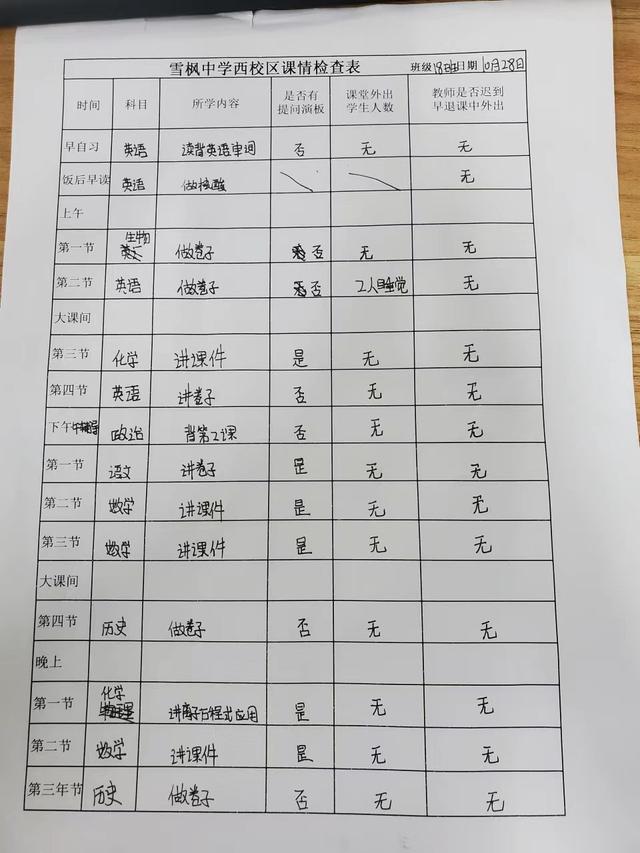 雪枫中学西校区课情检查表 班级18班 日期10月28日
时间 科目 所学内容 是否有提问演板 课堂外出学生人数 教师是否迟到早退课中外出
早自习 英语 读背英语单词 否 无 无
饭后早读 英语 做核酸 无
上午
第一节 生物 做卷子 否 无 无
第二节 英语 做卷子 否 2人睡觉 无
大课间
第三节 化学 讲课件 是 无 无
第四节 英语 讲卷子 否 无 无
下午 政治 背第2课 否 无 无
第一节 语文 讲卷子 是 无 无
第二节 数学 讲课件 是 无 无
第三节 数学 讲课件 是 无 无
大课间
第四节 历史 做卷子 否 无 无
晚上
第一节 化学 讲离子方程式应用 是 无 无
第二节 数学 讲课件 是 无 无
第三年节 历史 做卷子 否 无 无